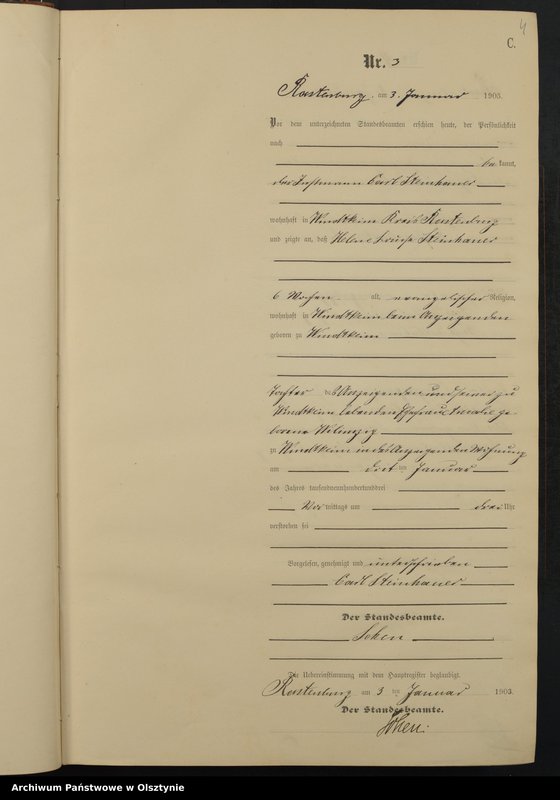 4
C.
Nr. 3
Rastenburg am 3. Januar 1903.
Vor dem unterzeichneten Standesbeamten erschien heute, der Persönlichkeit
nach
bekannt,
der Instmann Carl Steinhauer
wohnhaft in Windtkeim Kreis Rastenburg
und zeigte an, daß Helene Steinhauer
6 Wochen alt, evangelischer Religion,
wohnhaft in Windtkeim beim Anzeigenden
geboren zu Windtkeim
Tochter des Anzeigenden und seiner zu
Windtkeim lebenden Ehefrau geborene
zu Windtkeim in des Anzeigenden Wohnung
am drei ten Januar
des Jahres tausendneunhundertunddrei
Vor mittags um drei Uhr
verstorben sei
Vorgelesen, genehmigt und unterschrieben
Carl Steinhauer
Der Standesbeamte.
Die Uebereinstimmung mit dem Hauptregister beglaubigt.
Rastenburg am 3 ten Januar 1903.
Der Standesbeamte.
Archiwum Państwowe w Olsztynie